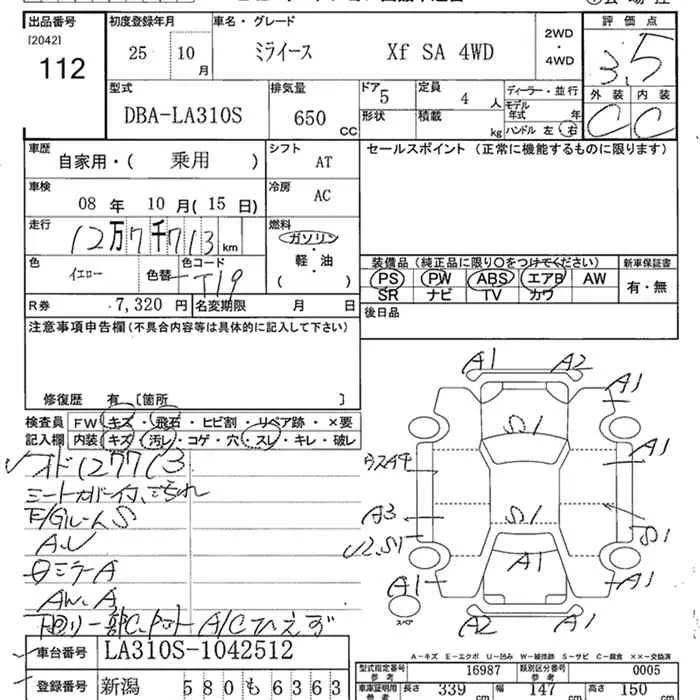 出品番号 初度登録年月 車名・グレード 2WD・4WD 評価点
[2042] 112 25 10月 ミライース Xf SA 4WD 3.5
型式 排気量 ドア 5 定員 4人 ディーラー・並行 外装 内装
DBA-LA310S 650CC 形状 積載 kg モデル年式 年 C C
ハンドル 左 右
車歴 シフト セールスポイント(正常に機能するものに限ります)
自家用・( 乗用 ) AT
車検 冷房
08年 10月(15日) AC
走行 燃料
12万7千713km ガソリン・軽・油
( )
色 色コード 装備品(純正品に限り○をつけてください) 新車保証書
イエロー 色替 T19 PS PW ABS エアB AW 有・無
SR ナビ TV カワ
R券 7,320円 名変期限 月 日 後日品
注意事項申告欄(不具合内容等は具体的に記入して下さい)
修復歴 有 [箇所 ]
検査員 FW キズ・飛石・ヒビ割・リペア跡・×要
記入欄 内装 キズ・汚レ・コゲ・穴・スレ・キレ・破レ
オド127713
シートカバー付、こごれ
A.U
ミラーA
AW.A
下廻り一部C A/Cひえず
A1 A2 A1
S1
A1
A3 S1 S1
U2.S1
A1 A1 A1
スペア
A2 A1
A-キズ E-エクボ U-凹み W-補修跡 S-サビ C-腐食 ××-交換済
車台番号 LA310S-1042512
型式指定番号 参考 16987 類別区分番号 参考 0005
登録番号 新潟 580 も 6363
車庫証明用 参考 長さ 339cm 幅 147cm 高さ 150cm